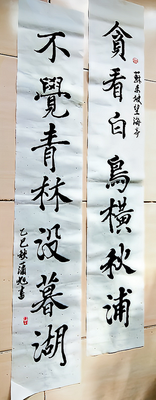 貪看白鳥橫秋浦
蘇東坡望海
不覺青林沒暮湖
乙巳秋 書